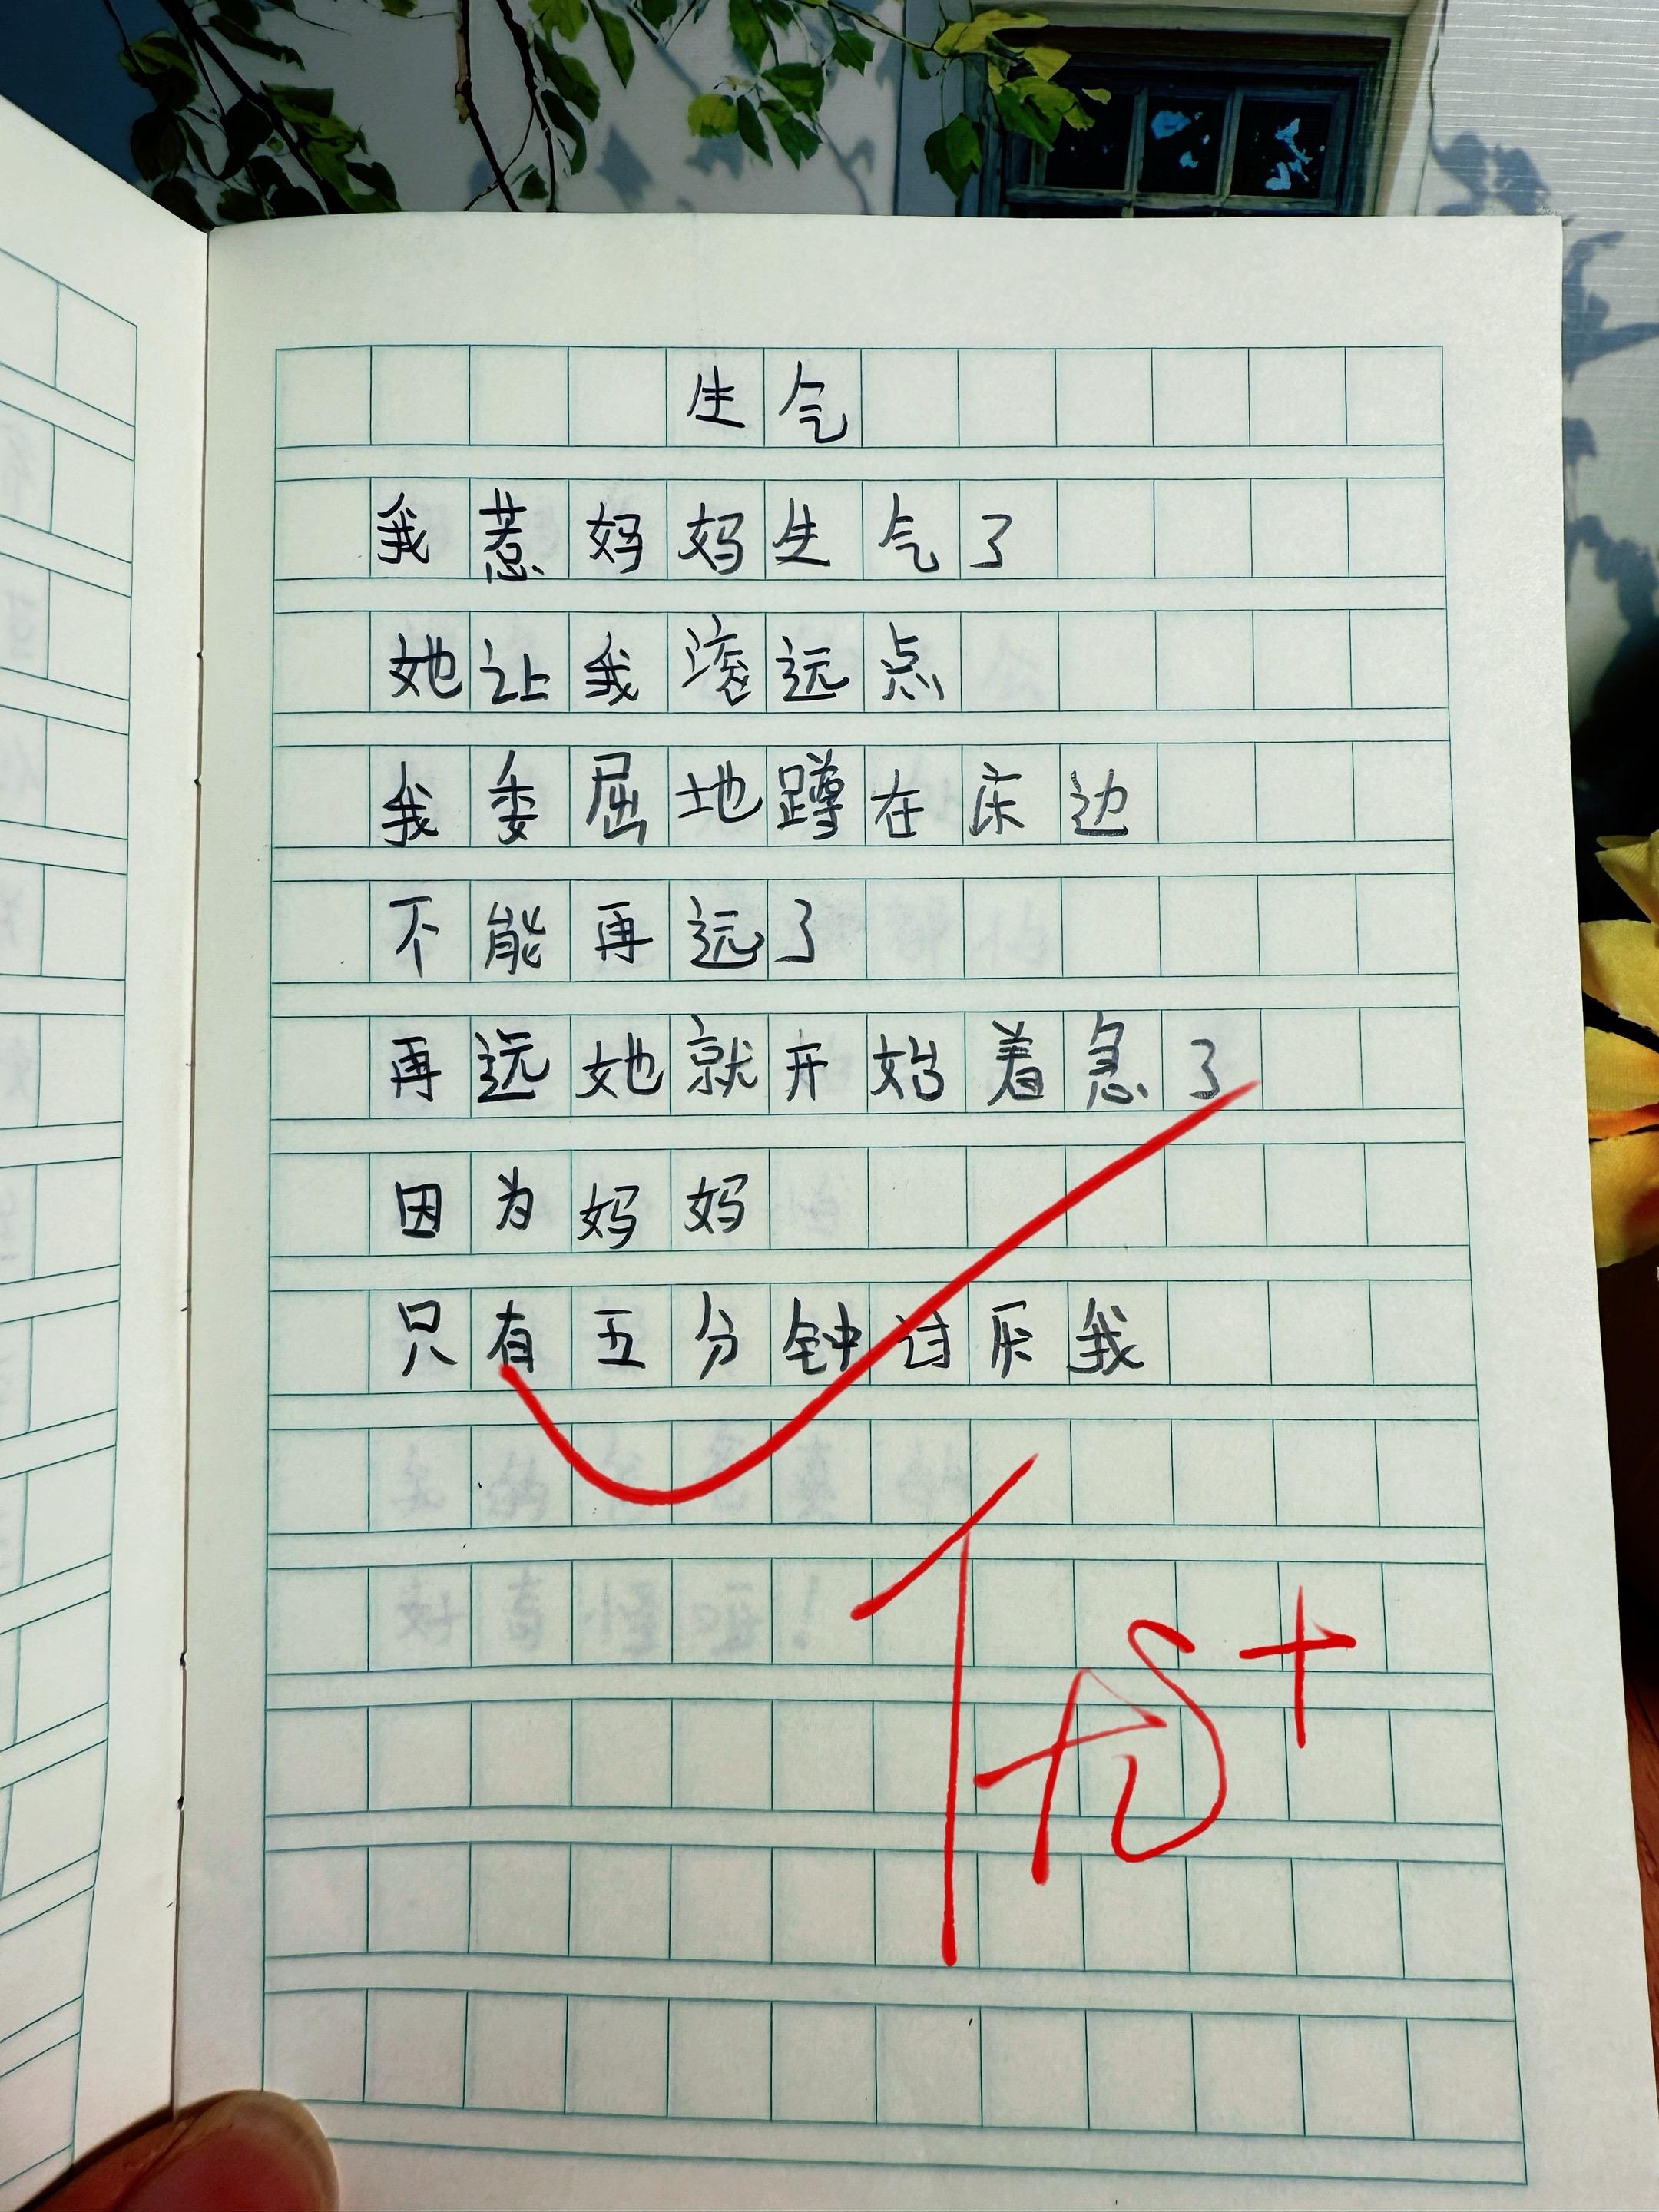 生气
我惹妈妈生气了
她让我滚远点
我委屈地蹲在床边
不能再远了
再远她就开始着急了
因为妈妈
只有五分钟讨厌我
优+